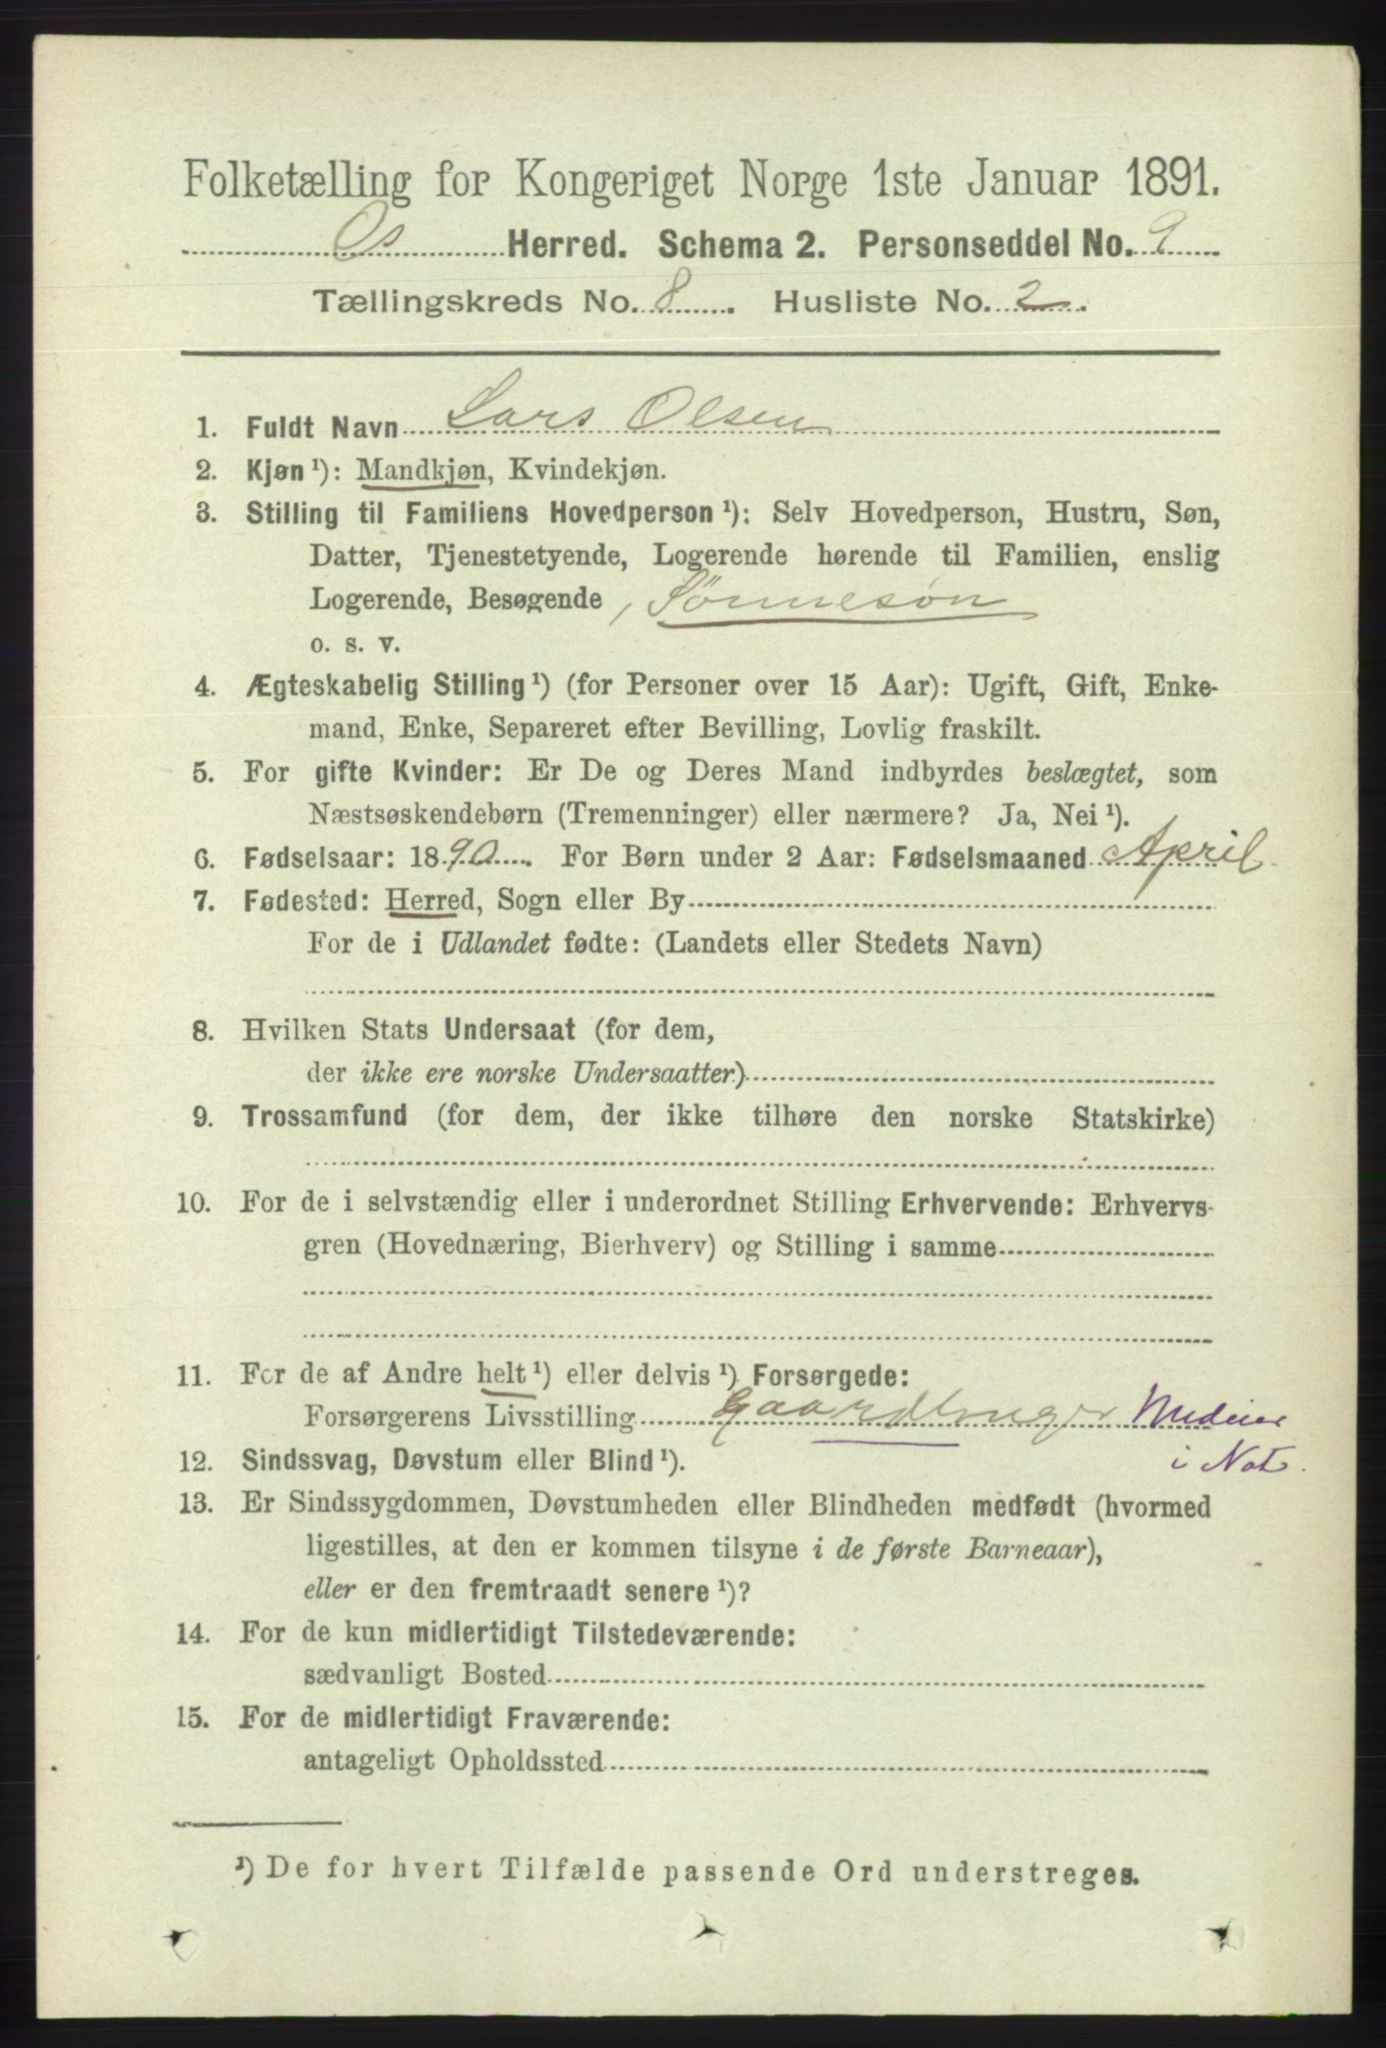 Folketælling for Kongeriget Norge 1ste Januar 1891.
Os Herred. Schema 2. Personseddel No. 9
Tællingskreds No. 8. Husliste No. 2.
1. Fuldt Navn Lars Olsen
2. Kjøn ¹): Mandkjøn, Kvindekjøn.
3. Stilling til Familiens Hovedperson ¹): Selv Hovedperson, Hustru, Søn,
Datter, Tjenestetyende, Logerende hørende til Familien, enslig
Logerende, Besøgende, Sönnesön
o. s. v.
4. Ægteskabelig Stilling ¹) (for Personer over 15 Aar): Ugift, Gift, Enke-
mand, Enke, Separeret efter Bevilling, Lovlig fraskilt.
5. For gifte Kvinder: Er De og Deres Mand indbyrdes beslægtet, som
Næstsøskendebørn (Tremenninger) eller nærmere? Ja, Nei ¹).
6. Fødselsaar: 1890. For Børn under 2 Aar: Fødselsmaaned April
7. Fødested: Herred, Sogn eller By
For de i Udlandet fødte: (Landets eller Stedets Navn)
8. Hvilken Stats Undersaat (for dem,
der ikke ere norske Undersaatter)
9. Trossamfund (for dem, der ikke tilhøre den norske Statskirke)
10. For de i selvstændig eller i underordnet Stilling Erhvervende: Erhvervs-
gren (Hovednæring, Bierhverv) og Stilling i samme
11. For de af Andre helt ¹) eller delvis ¹) Forsørgede:
Forsørgerens Livsstilling Gaardbruger Medeier
i Not.
12. Sindssvag, Døvstum eller Blind ¹).
13. Er Sindssygdommen, Døvstumheden eller Blindheden medfødt (hvormed
ligestilles, at den er kommen tilsyne i de første Barneaar),
eller er den fremtraadt senere ¹)?
14. For de kun midlertidigt Tilstedeværende:
sædvanligt Bosted
15. For de midlertidigt Fraværende:
antageligt Opholdssted
¹) De for hvert Tilfælde passende Ord understreges.